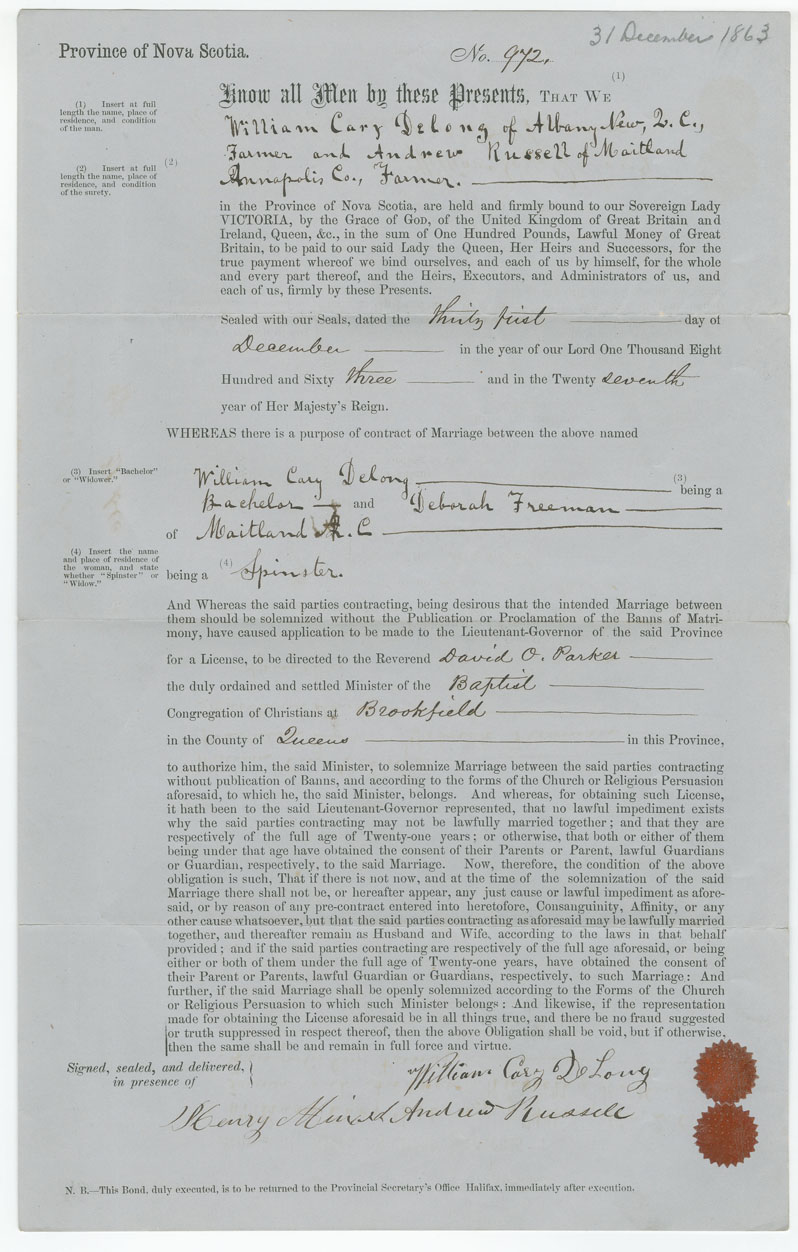 31 December 1863
Province of Nova Scotia.
No. 972.
(1)
Know all Men by these Presents, THAT WE
(1) Insert at full
length the name, place of
residence, and condition
of the man.
William Cary Delong of Albany New, Q. C.,
(2) Insert at full
length the name, place of
residence, and condition
of the surety.
(2)
Farmer and Andrew Russell of Maitland
Annapolis Co., Farmer.
in the Province of Nova Scotia, are held and firmly bound to our Sovereign Lady
VICTORIA, by the Grace of GOD, of the United Kingdom of Great Britain and
Ireland, Queen, &c., in the sum of One Hundred Pounds, Lawful Money of Great
Britain, to be paid to our said Lady the Queen, Her Heirs and Successors, for the
true payment whereof we bind ourselves, and each of us by himself, for the whole
and every part thereof, and the Heirs, Executors, and Administrators of us, and
each of us, firmly by these Presents.
Sealed with our Seals, dated the thirty first day of
December in the year of our Lord One Thousand Eight
Hundred and Sixty three and in the Twenty seventh
year of Her Majesty's Reign.
WHEREAS there is a purpose of contract of Marriage between the above named
(3) Insert "Bachelor"
or "Widower."
William Cary Delong (3) being a
Bachelor and Deborah Freeman
of Maitland A. C
(4) Insert the name
and place of residence of
the woman, and state
whether "Spinster" or
"Widow."
being a (4) Spinster.
And Whereas the said parties contracting, being desirous that the intended Marriage between
them should be solemnized without the Publication or Proclamation of the Banns of Matri-
mony, have caused application to be made to the Lieutenant-Governor of the said Province
for a License, to be directed to the Reverend David O. Parker
the duly ordained and settled Minister of the Baptist
Congregation of Christians at Brookfield
in the County of Queens in this Province,
to authorize him, the said Minister, to solemnize Marriage between the said parties contracting
without publication of Banns, and according to the forms of the Church or Religious Persuasion
aforesaid, to which he, the said Minister, belongs. And whereas, for obtaining such License,
it hath been to the said Lieutenant-Governor represented, that no lawful impediment exists
why the said parties contracting may not be lawfully married together; and that they are
respectively of the full age of Twenty-one years; or otherwise, that both or either of them
being under that age have obtained the consent of their Parents or Parent, lawful Guardians
or Guardian, respectively, to the said Marriage. Now, therefore, the condition of the above
obligation is such, That if there is not now, and at the time of the solemnization of the said
Marriage there shall not be, or hereafter appear, any just cause or lawful impediment as afore-
said, or by reason of any pre-contract entered into heretofore, Consanguinity, Affinity, or any
other cause whatsoever, but that the said parties contracting as aforesaid may be lawfully married
together, and thereafter remain as Husband and Wife, according to the laws in that behalf
provided; and if the said parties contracting are respectively of the full age aforesaid, or being
either or both of them under the full age of Twenty-one years, have obtained the consent of
their Parent or Parents, lawful Guardian or Guardians, respectively, to such Marriage: And
further, if the said Marriage shall be openly solemnized according to the Forms of the Church
or Religious Persuasion to which such Minister belongs: And likewise, if the representation
made for obtaining the License aforesaid be in all things true, and there be no fraud suggested
or truth suppressed in respect thereof, then the above Obligation shall be void, but if otherwise,
then the same shall be and remain in full force and virtue.
Signed, sealed, and delivered,
in presence of
William Cary DeLong
Henry Andrew Russell
N. B.—This Bond, duly executed, is to be returned to the Provincial Secretary's Office Halifax, immediately after execution.